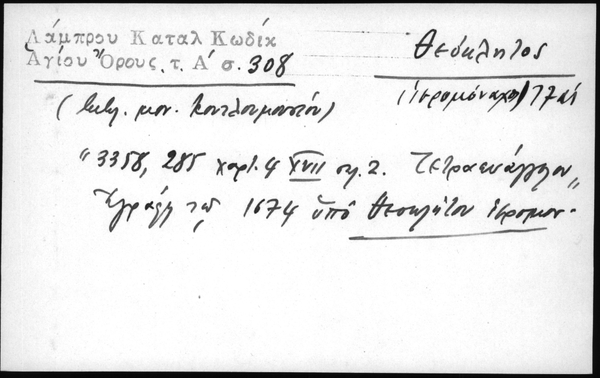 Λάμπρου Καταλ Κωδίκ
Αγίου Ὄρους. τ. Α' σ. 308
Θεόκλητος
(ἱερομόναχος) 17 αἰ
(Βιβλ. μον. Κουτλουμουσίου)
"3358, 285 χαρτ. 4 XVII σχ. 2. Τετραευάγγελον
Ἐγράφη τῷ 1674 ὑπὸ Θεοκλήτου ἱερομον."